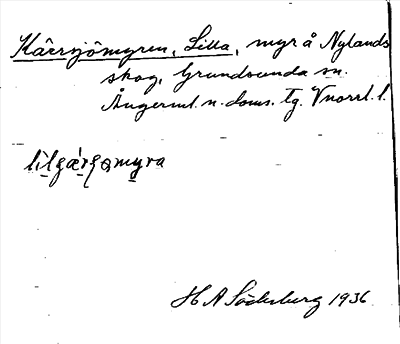 Kärrsjömyren, Lilla, myr å Nylands
skog, Grundsunda sn.
Ångerml. n. doms. Tg. Vnorrl. l.
lìlʒæ̀rʂomyra
H A Söderberg 1936